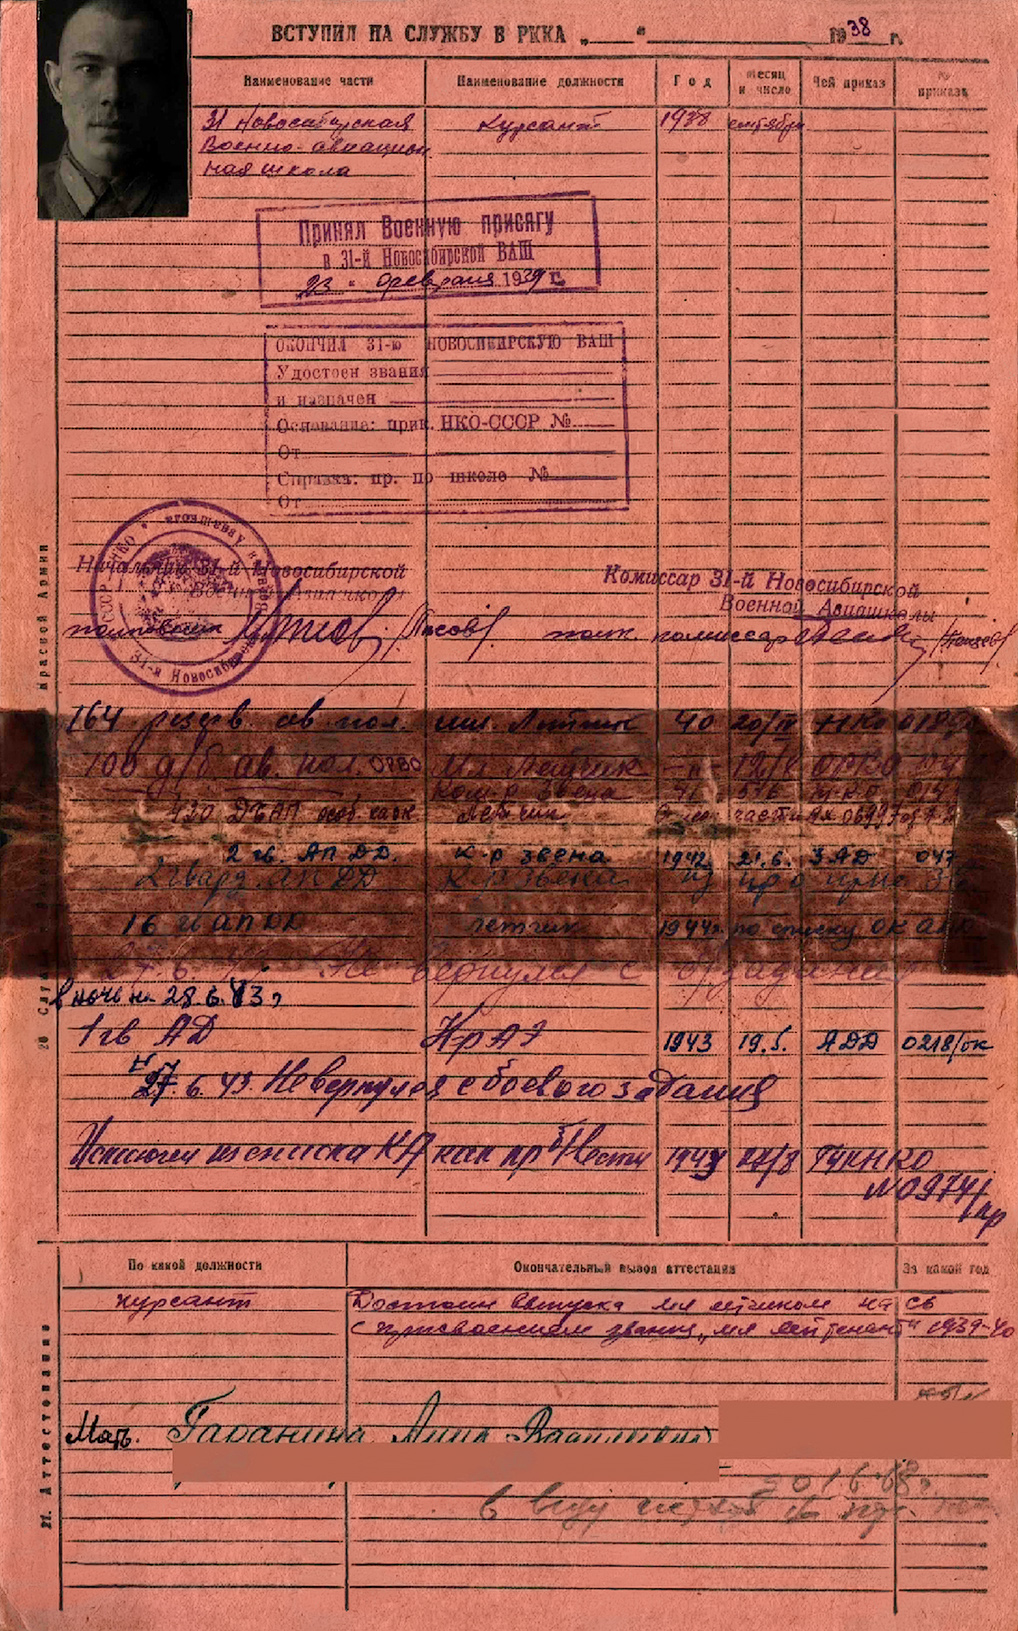 ВСТУПИЛ НА СЛУЖБУ В РККА „ " 1938 г.
Наименование части Наименование должности Год Месяц и число Чей приказ № приказа
31 Новосибирская Курсант 1938 сентября
Военно-авиацион
ная школа
Принял Военную присягу
в 31-й Новосибирской ВАШ
23 " февраля 1939 г.
ОКОНЧИЛ 31-ю НОВОСИБИРСКУЮ ВАШ
Удостоен звания
и назначен
Основание: прик. НКО-СССР №
От
Справка: пр. по школе №
От
Начальник 31-й Новосибирской
Военной Авиашколы
Комиссар 31-й Новосибирской
Военной Авиашколы
полковник
полк. комиссар
31-й Новосибирск
Красной Армии
164 резерв. ав. пол. мл. Летчик 40 20/II НКО
100 д/б. ав. пол. ОРВО Мл. Летчик -"- ОРВО
Ком-р звена
420 ДБАП особ. назн. Летчик
2 гв. АП ДД. К-р звена 1942 21.6. 3 АД 047
2 гвард. АП ДД К-р звена
16 гв АП ДД летчик 1944г. по списку ОК АДД
27.6.43г. Не вернулся с б/задания
В ночь на 28.6.43г
1 гв АД К-р АЭ 1943 19.5. АДД 0218/ок
27.6.43. Не вернулся с боевого задания
Исключен из списка КА как пр. б/вести 1943 27/8 ГУК НКО
№0974/пр
20
По какой должности Окончательный вывод аттестации За какой год
курсант Достоин выпуска мл летчиком на СБ
с присвоением звания „мл лейтенант" 1939-40
21. Аттестование
Мать. Гаранина Анна Васильевна
в виду